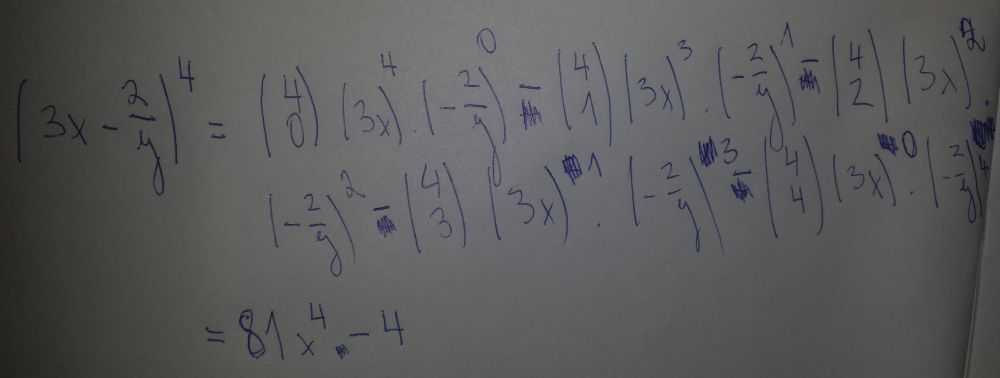 (3x - 2/y)^4 = (4 0) (3x)^4 · (-2/y)^0 - (4 1) (3x)^3 · (-2/y)^1 - (4 2) (3x)^2 ·
(-2/y)^2 - (4 3) (3x)^1 · (-2/y)^3 - (4 4) (3x)^0 · (-2/y)^4
= 81x^4 - 4